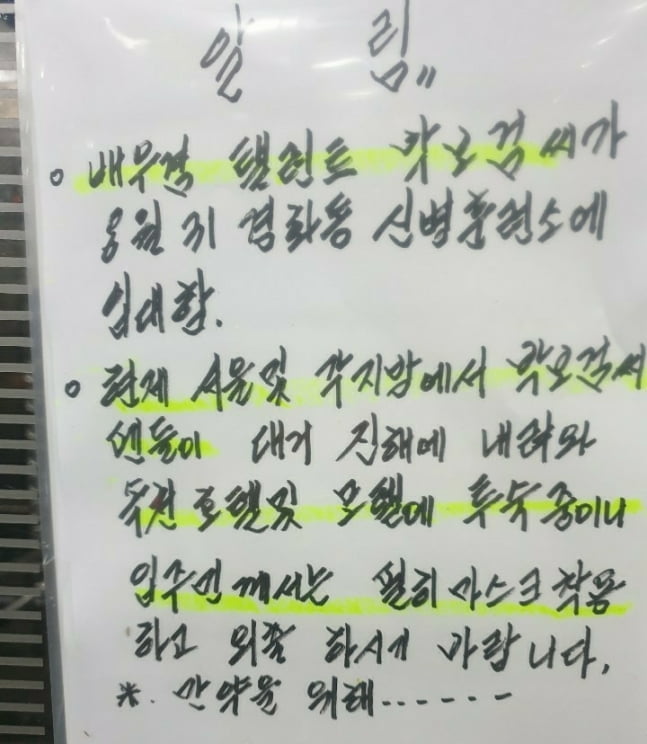 알 림"
◦ 배우겸 탤런트 박보검씨가
경화동 신병훈련소에
입대함.
◦ 현재 서울및 각지방에서 박보검씨
팬들이 대거 진해에 내려와
호텔및 모텔에 투숙중이니
입주민께서는 필히 마스크착용
하고 외출 하시기 바랍니다.
※. 만약을 위해......